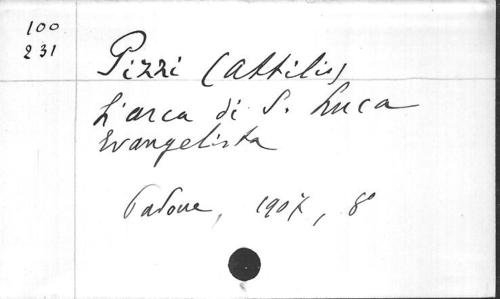 100
231
Pizzi (Attilio)
L'arca di S. Luca
Evangelista
Padova, 1907, 8°